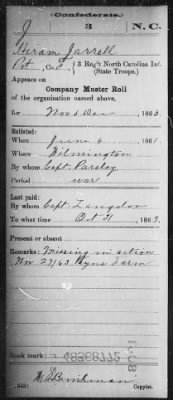 Confederate.
J 3 N.C.
Hiram Jarrell
Pvt, Co. 3 Reg't North Carolina Inf.
(State Troops.)
Appears on
Company Muster Roll
of the organization named above,
for Nov & Dec, 1863
Enlisted:
When June 6, 1861
Where Wilmington
By whom Capt. Parsley
Period war
Last paid:
By whom Capt Langdon
To what time Oct 31, 1863.
Present or absent
Remarks: Missing in action
Nov 27/63 Pynes Farm
Book mark:
48568772
(642)
Copyist.